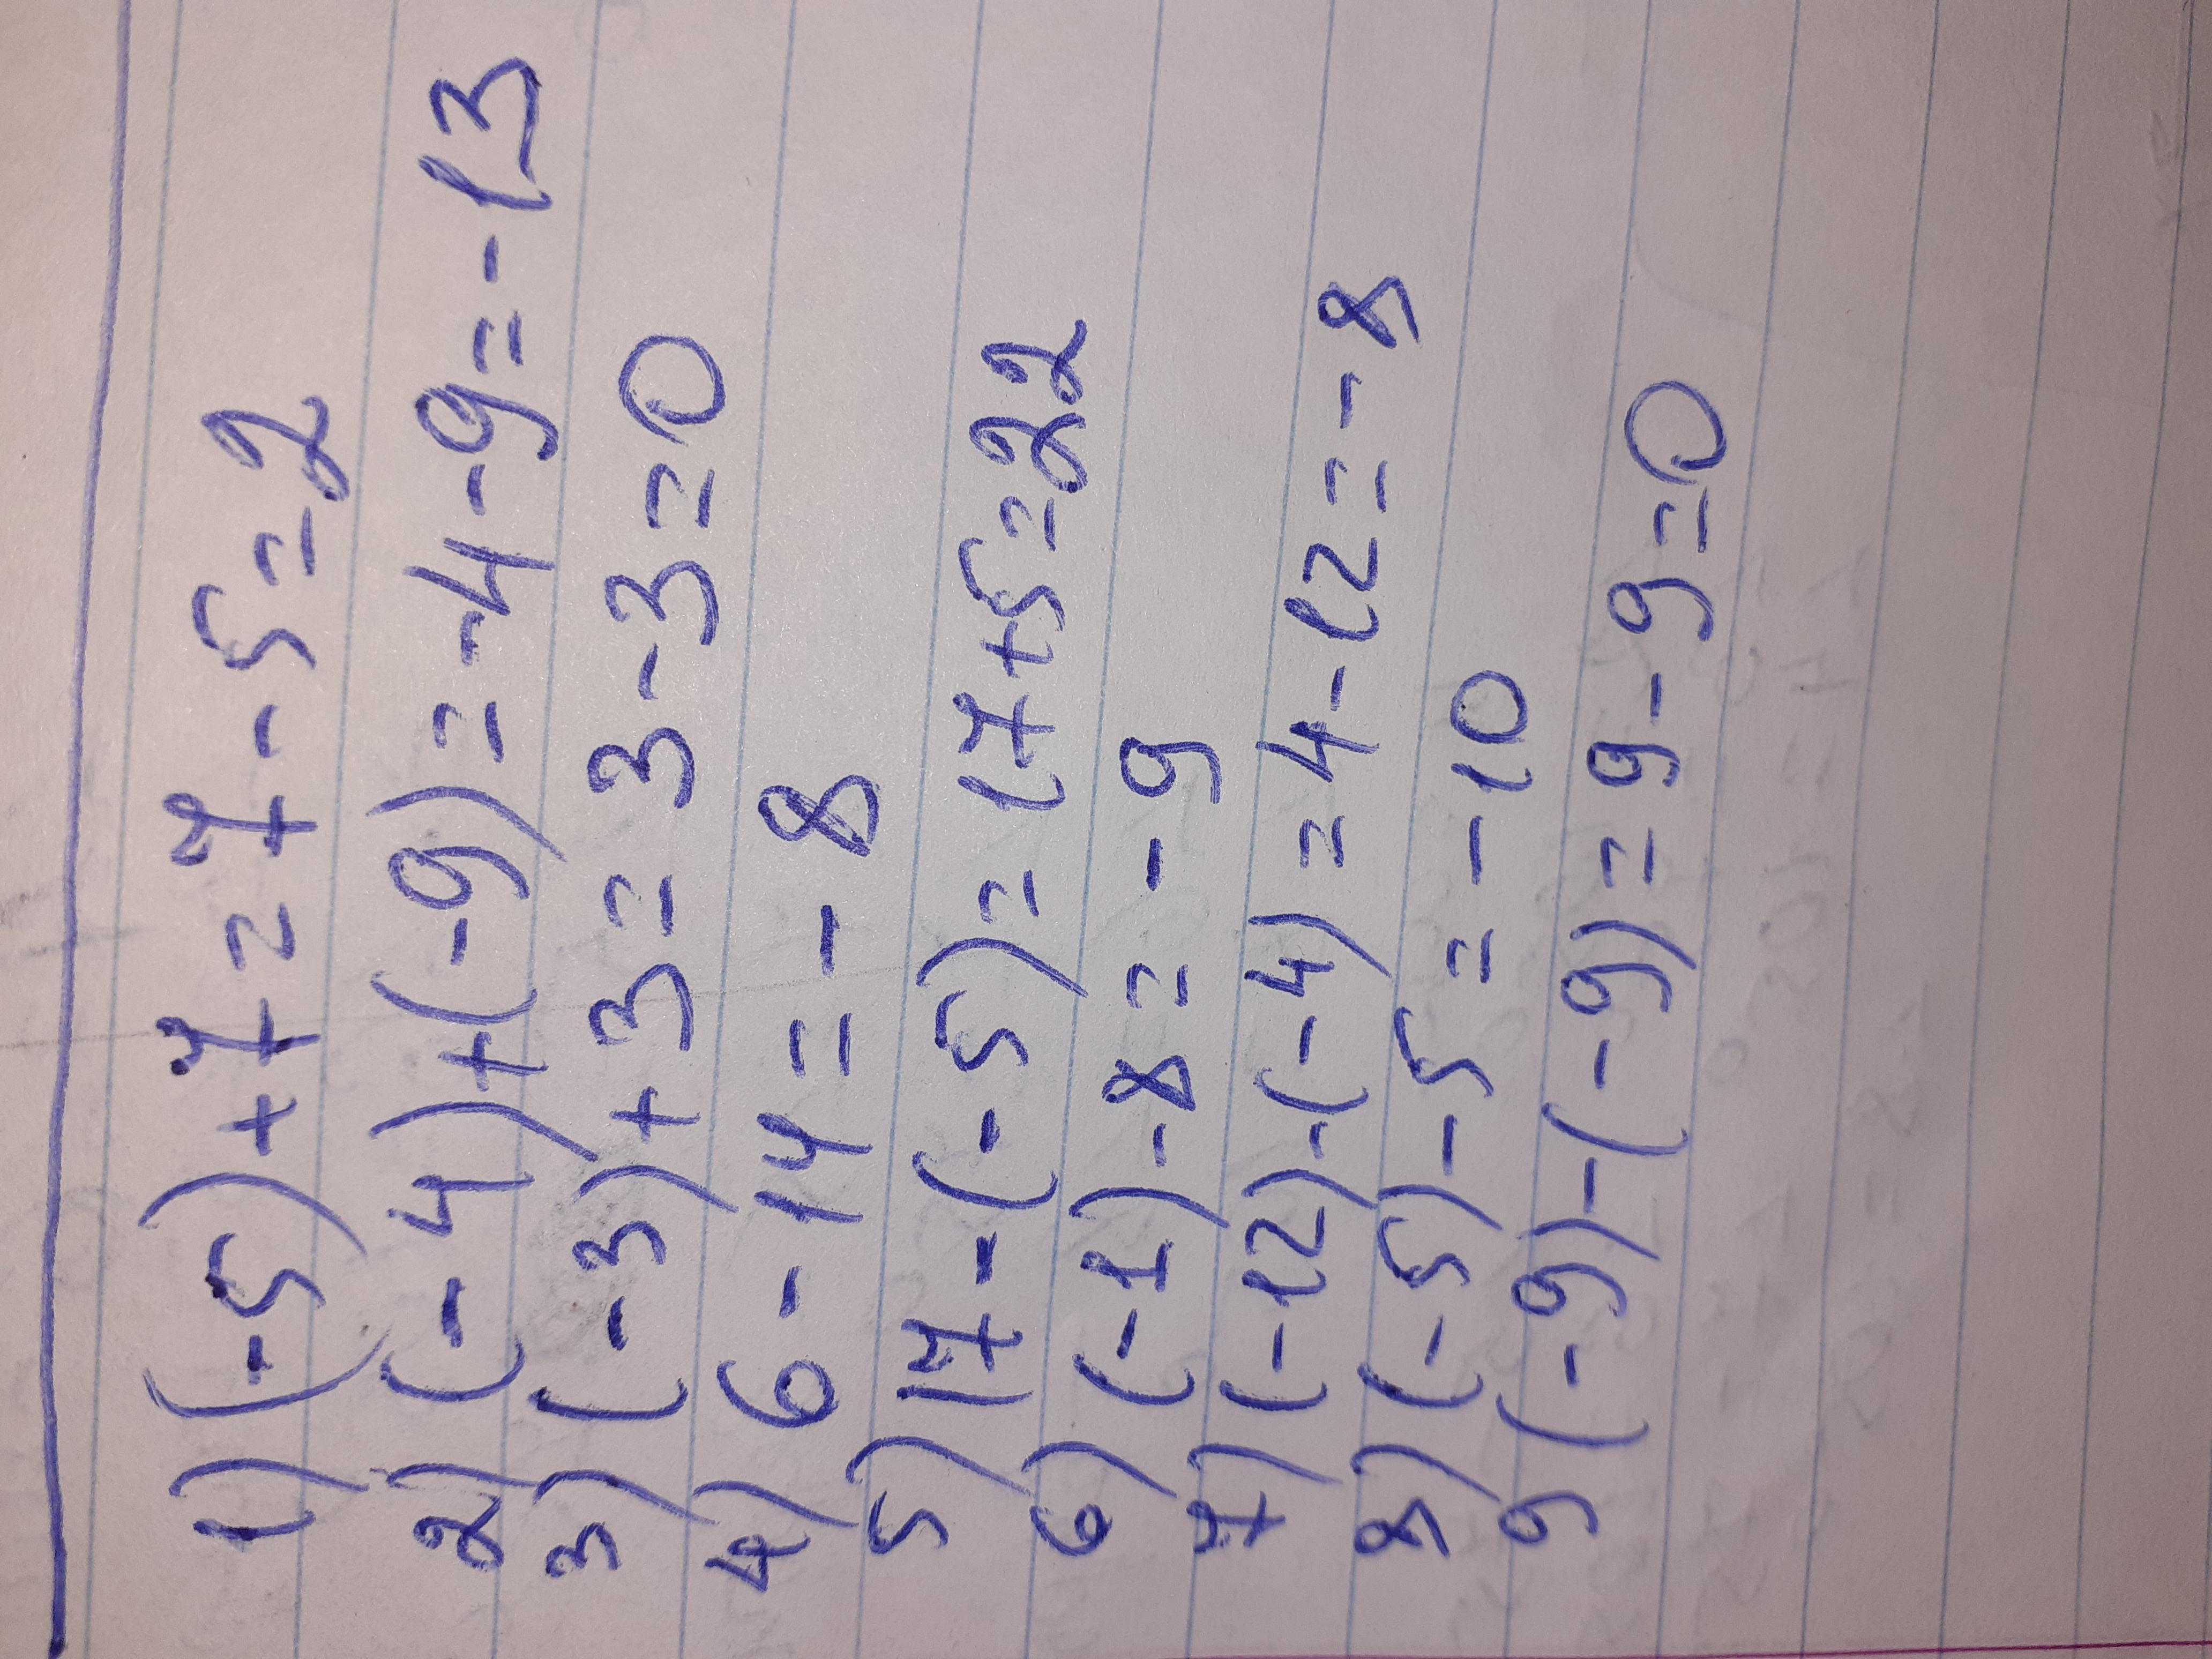 1) (-5) + 7 = 7 - 5 = 2
2) (-4) + (-9) = -4 - 9 = -13
3) (-3) + 3 = 3 - 3 = 0
4) 6 - 14 = - 8
5) 17 - (-5) = 17 + 5 = 22
6) (-1) - 8 = - 9
7) (-12) - (-4) = 4 - 12 = - 8
8) (-5) - 5 = - 10
9 (-9) - (-9) = 9 - 9 = 0